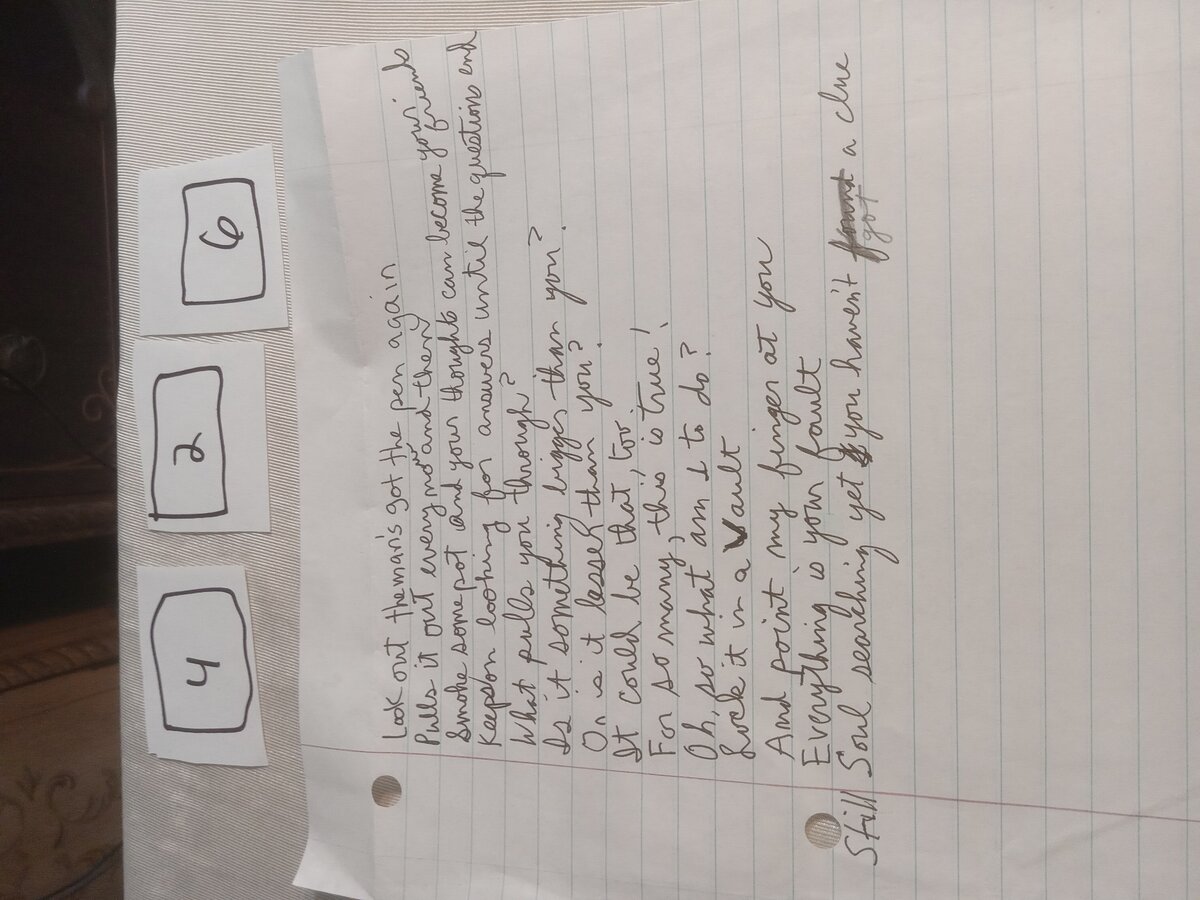 4 2 6
Look out the man's got the pen again
Pulls it out every now and then
Smoke some pot and your thoughts can become your friends
Keeps on looking for answers until the questions end
What pulls you through?
Is it something bigger than you?
Or is it lesser than you?
It could be that, too.
For so many, this is true!
Oh, so what am I to do?
Lock it in a Vault
And point my finger at you
Everything is your fault
Still Soul searching yet you haven't found got a clue